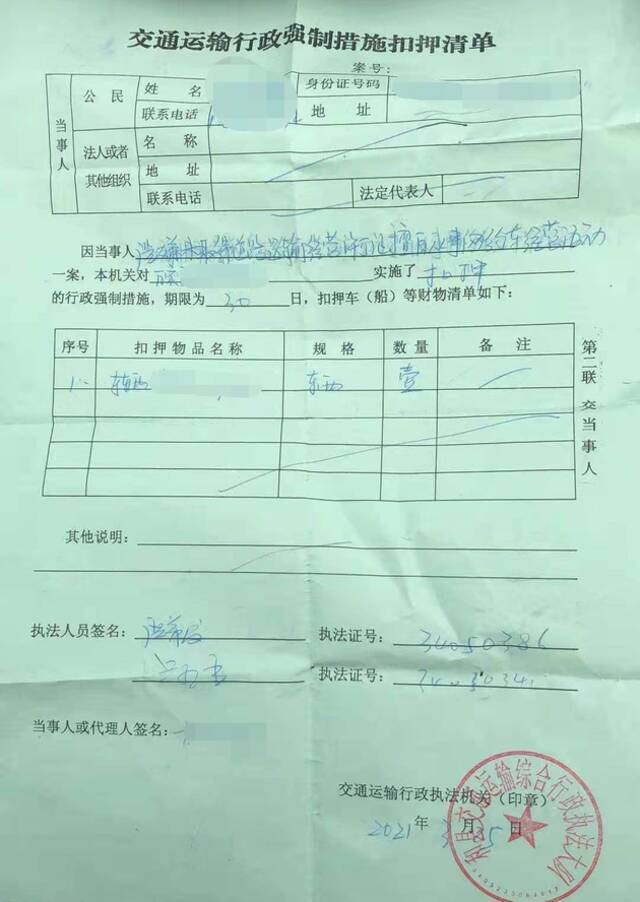 交通运输行政强制措施扣押清单
案号:
当事人
公民 姓名 身份证号码
联系电话 地址
法人或者其他组织 名称
地址
联系电话 法定代表人
因当事人涉嫌未取得道路运输经营许可证擅自从事网络约车经营活动
一案，本机关对 实施了 扣押
的行政强制措施，期限为 30 日，扣押车（船）等财物清单如下：
序号 扣押物品名称 规格 数量 备注
1、 车辆 车辆 壹
第二联 交当事人
其他说明:
执法人员签名: 执法证号: 34050386
执法证号:
当事人或代理人签名:
交通运输行政执法机关（印章）
2021年3月25日
和县交通运输综合行政执法大队